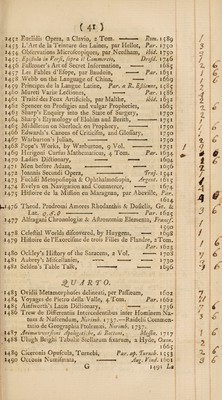 ( 41 )
1452 Euclidis Opera, a Clavio, 2 Tom. —— Rom. 1589
1453 L'Art de la Teinture des Laines, par Hellot, Par. 1750
1454 Observations Microscopiques, par Needham, ibid. 1750
1455
1456 Falconer's Art of Secret Information, 1685
1457 Les Fables d'Esope, par Baudoin, Par. 1661
1458 Webb on the Language of China, 1669
1459 Principes de la Langue Latine, Par. 1586
1460 Martii Variæ Lectiones, 1586
1461 Traité des Feux Artificiels, par Malthe, ibid.
1462 Spencer on Prodigies and vulgar Prophecies, 1665
1463 Sharp's Enquiry into the State of Surgery, 1750
1464 Sharp's Etymology of Elohim and Berith, 1751
1465 Middleton on Sherlock on Prophecy, 1750
1466 Edwards's Canons of Criticism, and Glossary, 1750
1467 Warburton's Julian, 1750
1468 Pope's Works, by Warburton, 9 Vol. 1751
1469 Herigoni Cursus Mathematicus, 4 Tom. Par. 1634
1470 Ladies Dictionary, 1694
1471 Men before Adam, 1656
1472 Joannis Secundi Opera, Traj. 1541
1473 Puchili Metoposcopia &amp; Ophthalmoscopia, Argent. 1615
1474 Evelyn on Navigation and Commerce, 1674
1475 Histoire de la Mission en Maragnan, par Abbeville, Par.
1614
1476 Theod. Prodromi Amores Rhodanthis &amp; Dosiclis, Gr. &amp;
Lat. Par. 1625
1477 Alfragani Chronologica &amp; Astronomiæ Elementa, Francf.
1590
1478 Celestial Worlds discovered, by Huygens, 1698
1479 Histoire de l'Exorcisme de trois Filles de Flandre, 2 Tom.
Par. 1623
1480 Ockley's History of the Saracens, 2 Vol. 1708
1481 Aubrey's Miscellanies, 1730
1482 Selden's Table Talk, 1696
QUARTO.
1483 Ovidii Metamorphoses delineati, per Passæum, 1602
1484 Voyages de Pietro della Valle, 4 Tom. Par. 1662
1485 Ainsworth's Latin Dictionary, 1736
1486 Trew de Differentiis Intercedentibus inter Hominem Na-
tum &amp; Nascendum, Norimb. 1737.—Raidelii Commen-
tatio de Geographia Ptolemæi, Norimb. 1737.
1487
1488 Ulugh Beighi Tabulæ Stellarum fixarum, a Hyde, Oxon.
1665
1489 Ciceronis Opuscula, Turnebi, Par. ap. Turneb. 1555
1490 Occonis Numismata, Aug. Vind. 1601
G 1491 La